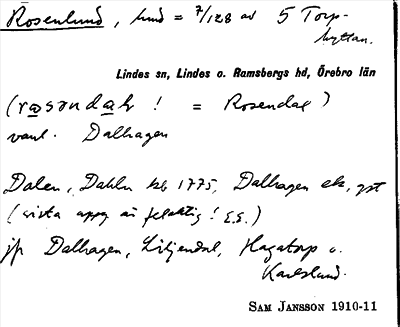 Rosenlund, hmd = 7/128 av 5 Torp-
hyttan.
Lindes sn, Lindes o. Ramsbergs hd, Örebro län
(ra̲sənda̲k ! = Rosendal)
vanl. Dalhagen
Dalen, Dahln kb 1775, Dalhagen ek,
(sista uppg är felaktig! E.E.)
jfr Dalhagen, Liljendal, Hagatorp o.
Karlslund.
SAM JANSSON 1910-11